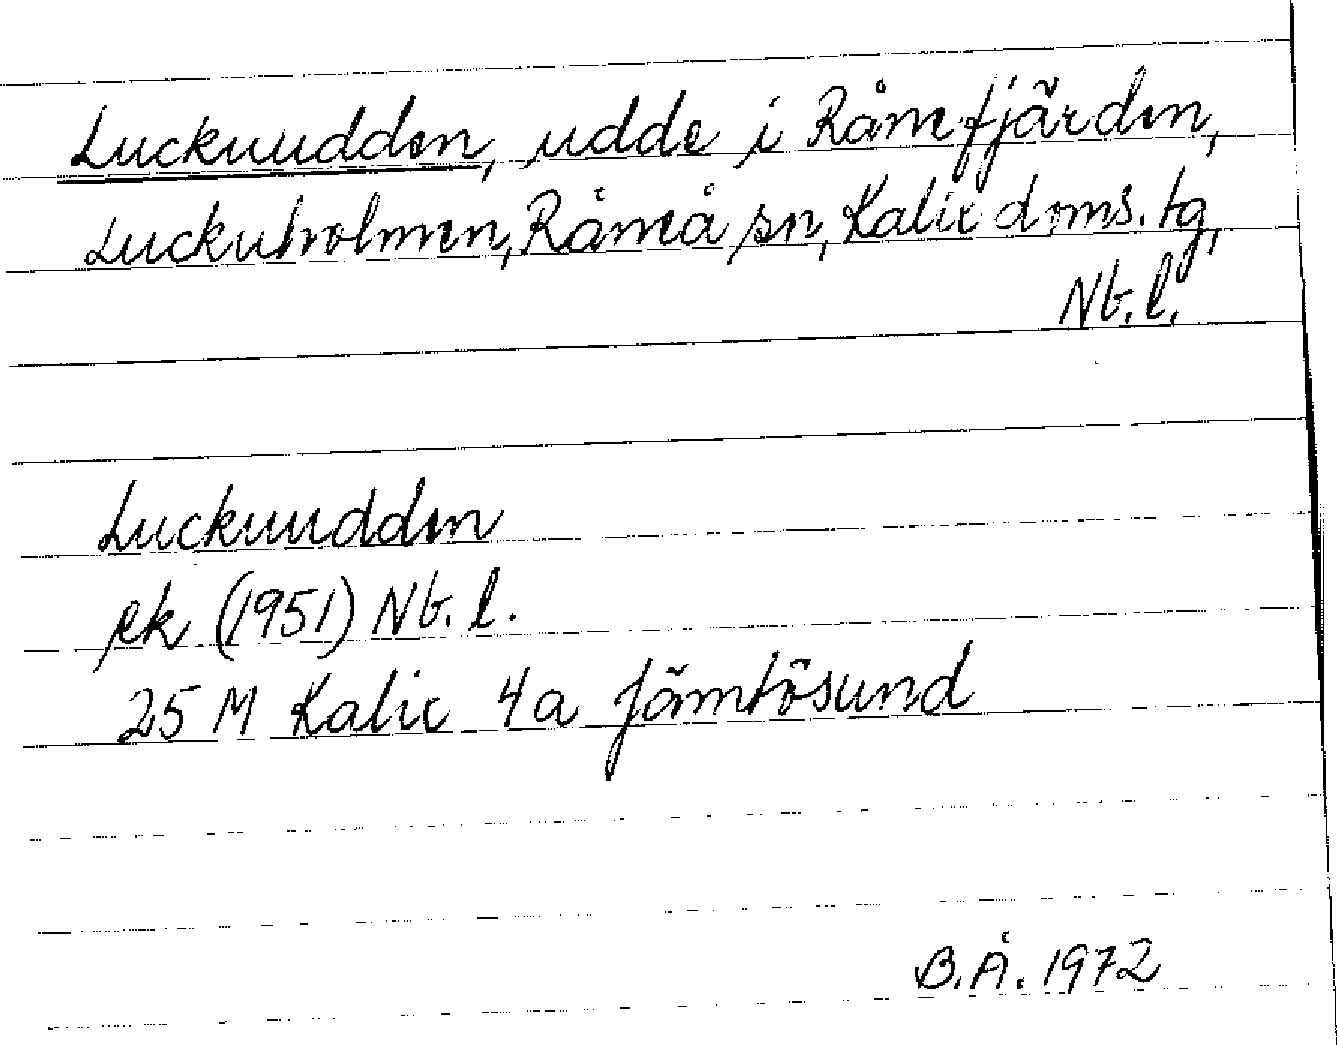 Luckuudden, udde i Rånefjärden,
Luckuholmen, Råneå sn, Kalix doms. tg,
Nb. l.
Luckuudden
ek (1951) Nb. l.
25 M Kalix 4a Jämtösund
B.Å. 1972